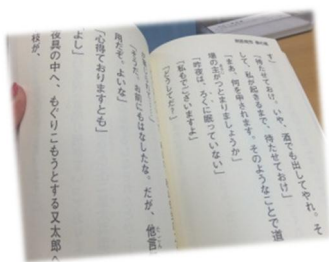 す」
「待たせておけ。いや、酒でも出してやれ。そ
して、私が起きるまで、待たせておけ」
「まあ、何を申されます。そのようなことで道
場の主がつとまりましょうか」
「昨夜は、ろくに眠っていない」
「私もでございますよ」
「どうしてだ？」
お前にもはなしたな。だが、他言
無用だぞ。よいな」
「心得ておりますとも」
「よし」
夜具の中へ、もぐりこもうとする又太郎へ
秋が、